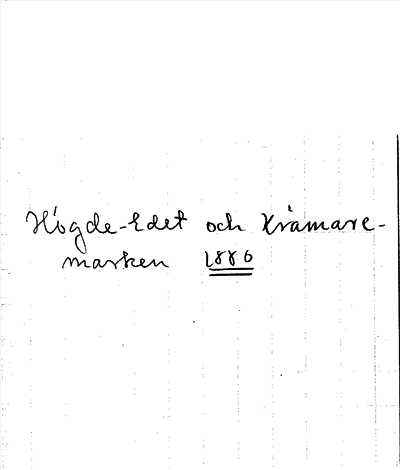 Högde-Edet och Kråmare-
marken 1886